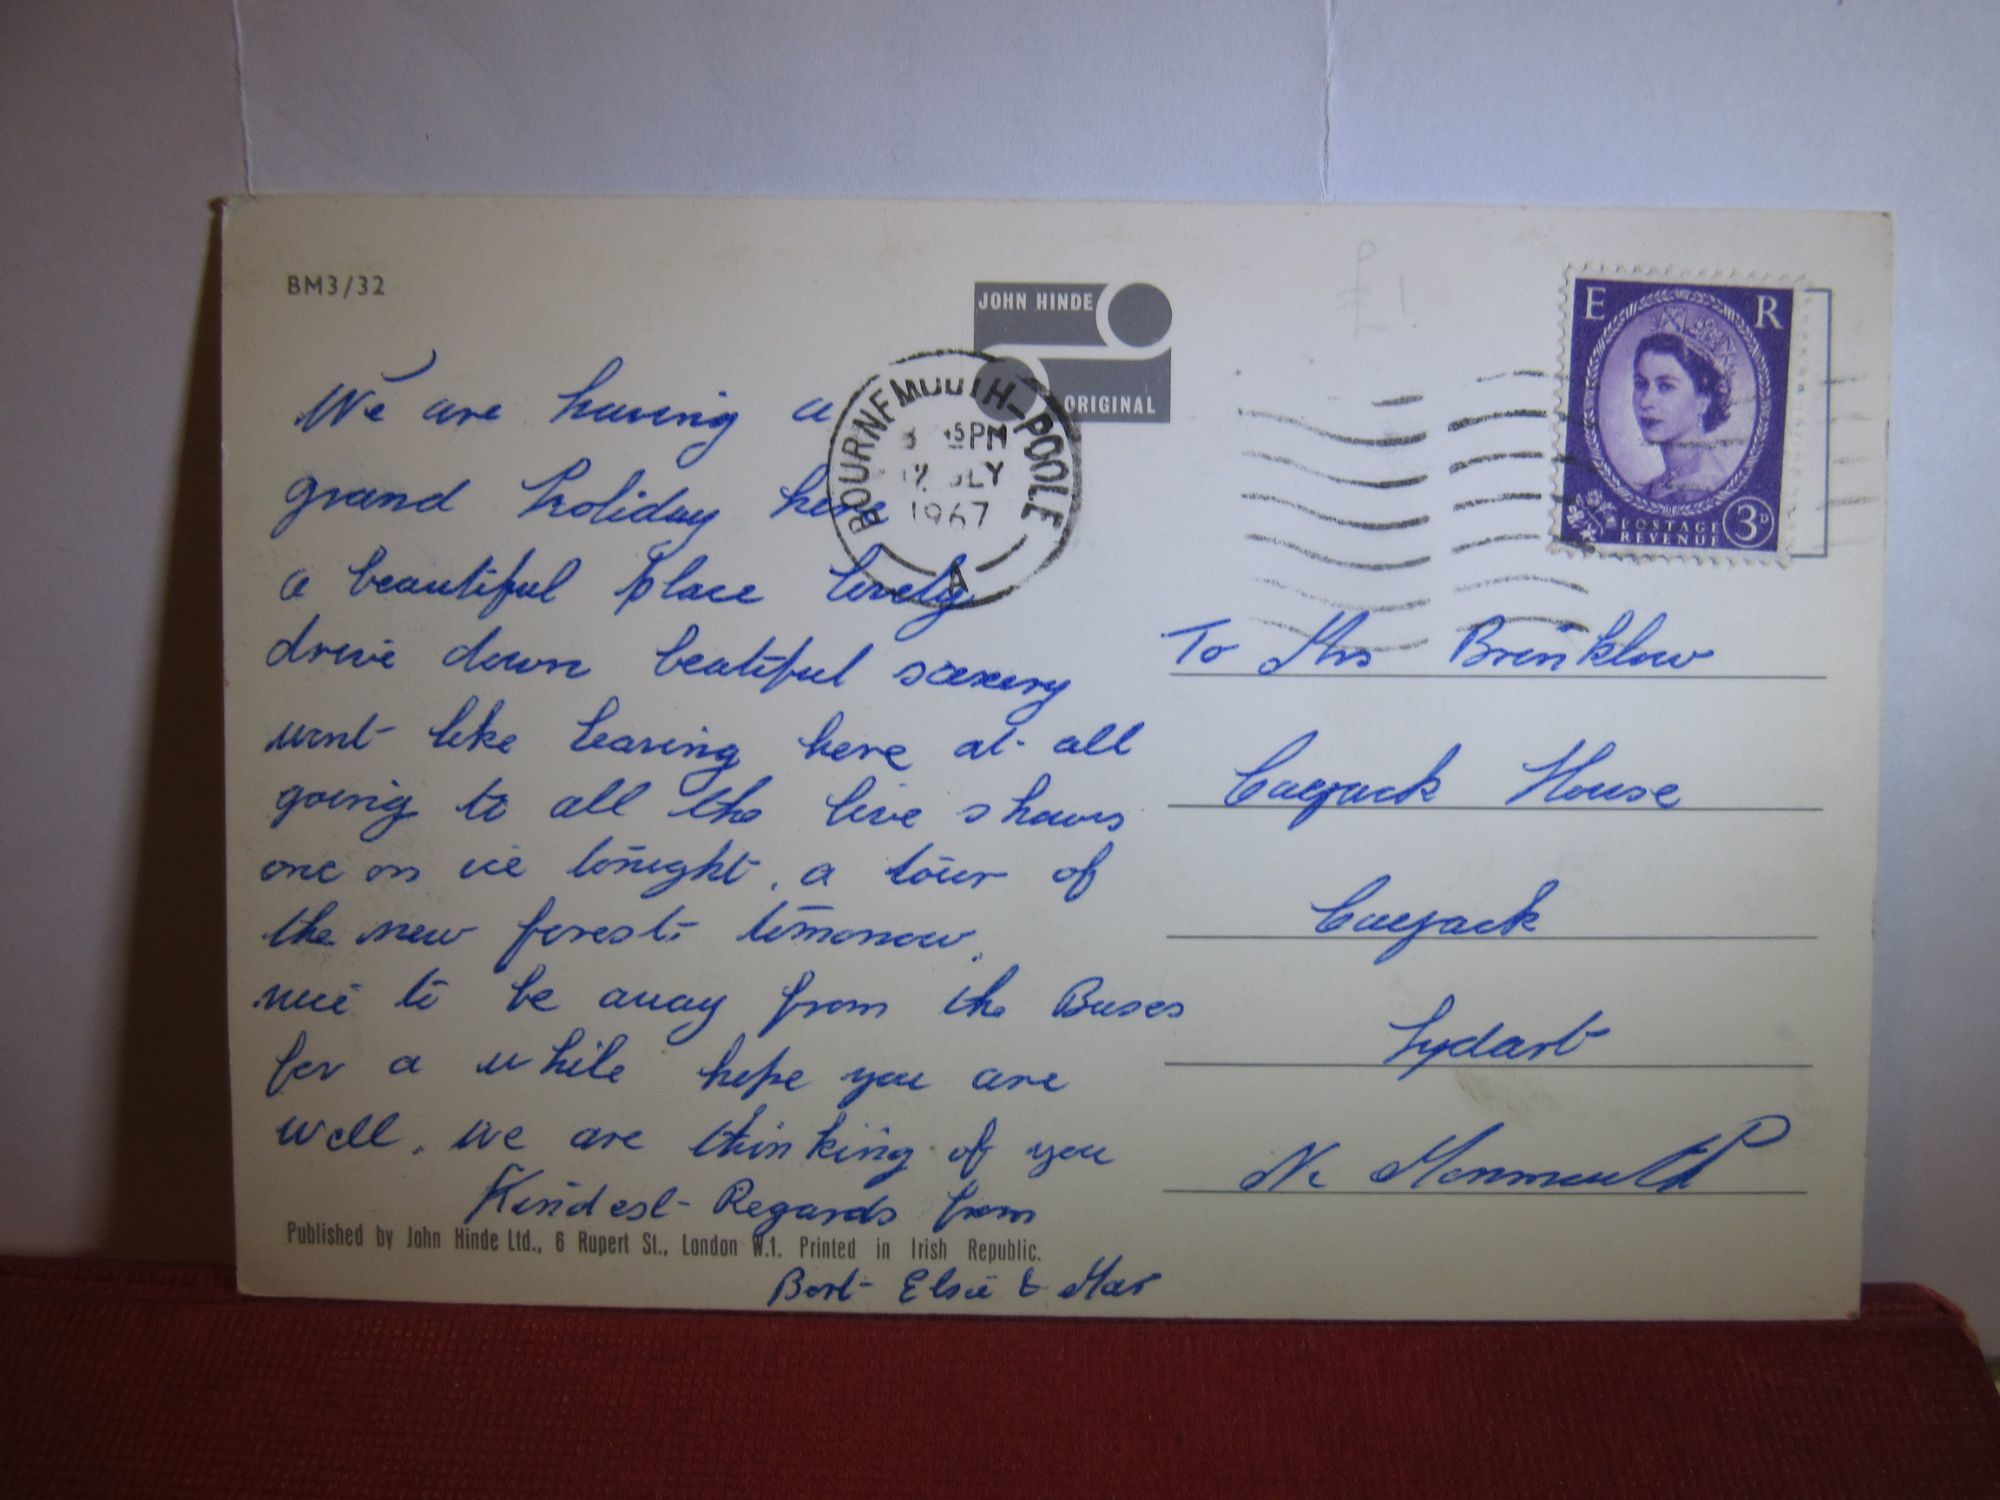 BM3/32
JOHN HINDE
ORIGINAL
£1
E R
POSTAGE
REVENUE
3D
BOURNEMOUTH-POOLE
15PM
JLY
1967
A
We are having a
grand holiday here
a beautiful place lovely
drive down beatiful scenery
wont like leaving here at all
going to all the live shows
one on ice tonight, a tour of
the new forest tomorrow,
nice to be away from the Buses
for a while hope you are
well, we are thinking of you
Kindest Regards from
Bert Elsie &
Published by John Hinde Ltd., 6 Rupert St., London W.1. Printed in Irish Republic.
To Mrs Brinklow
Caejack House
Caejack
Lydart
Nr Monmouth